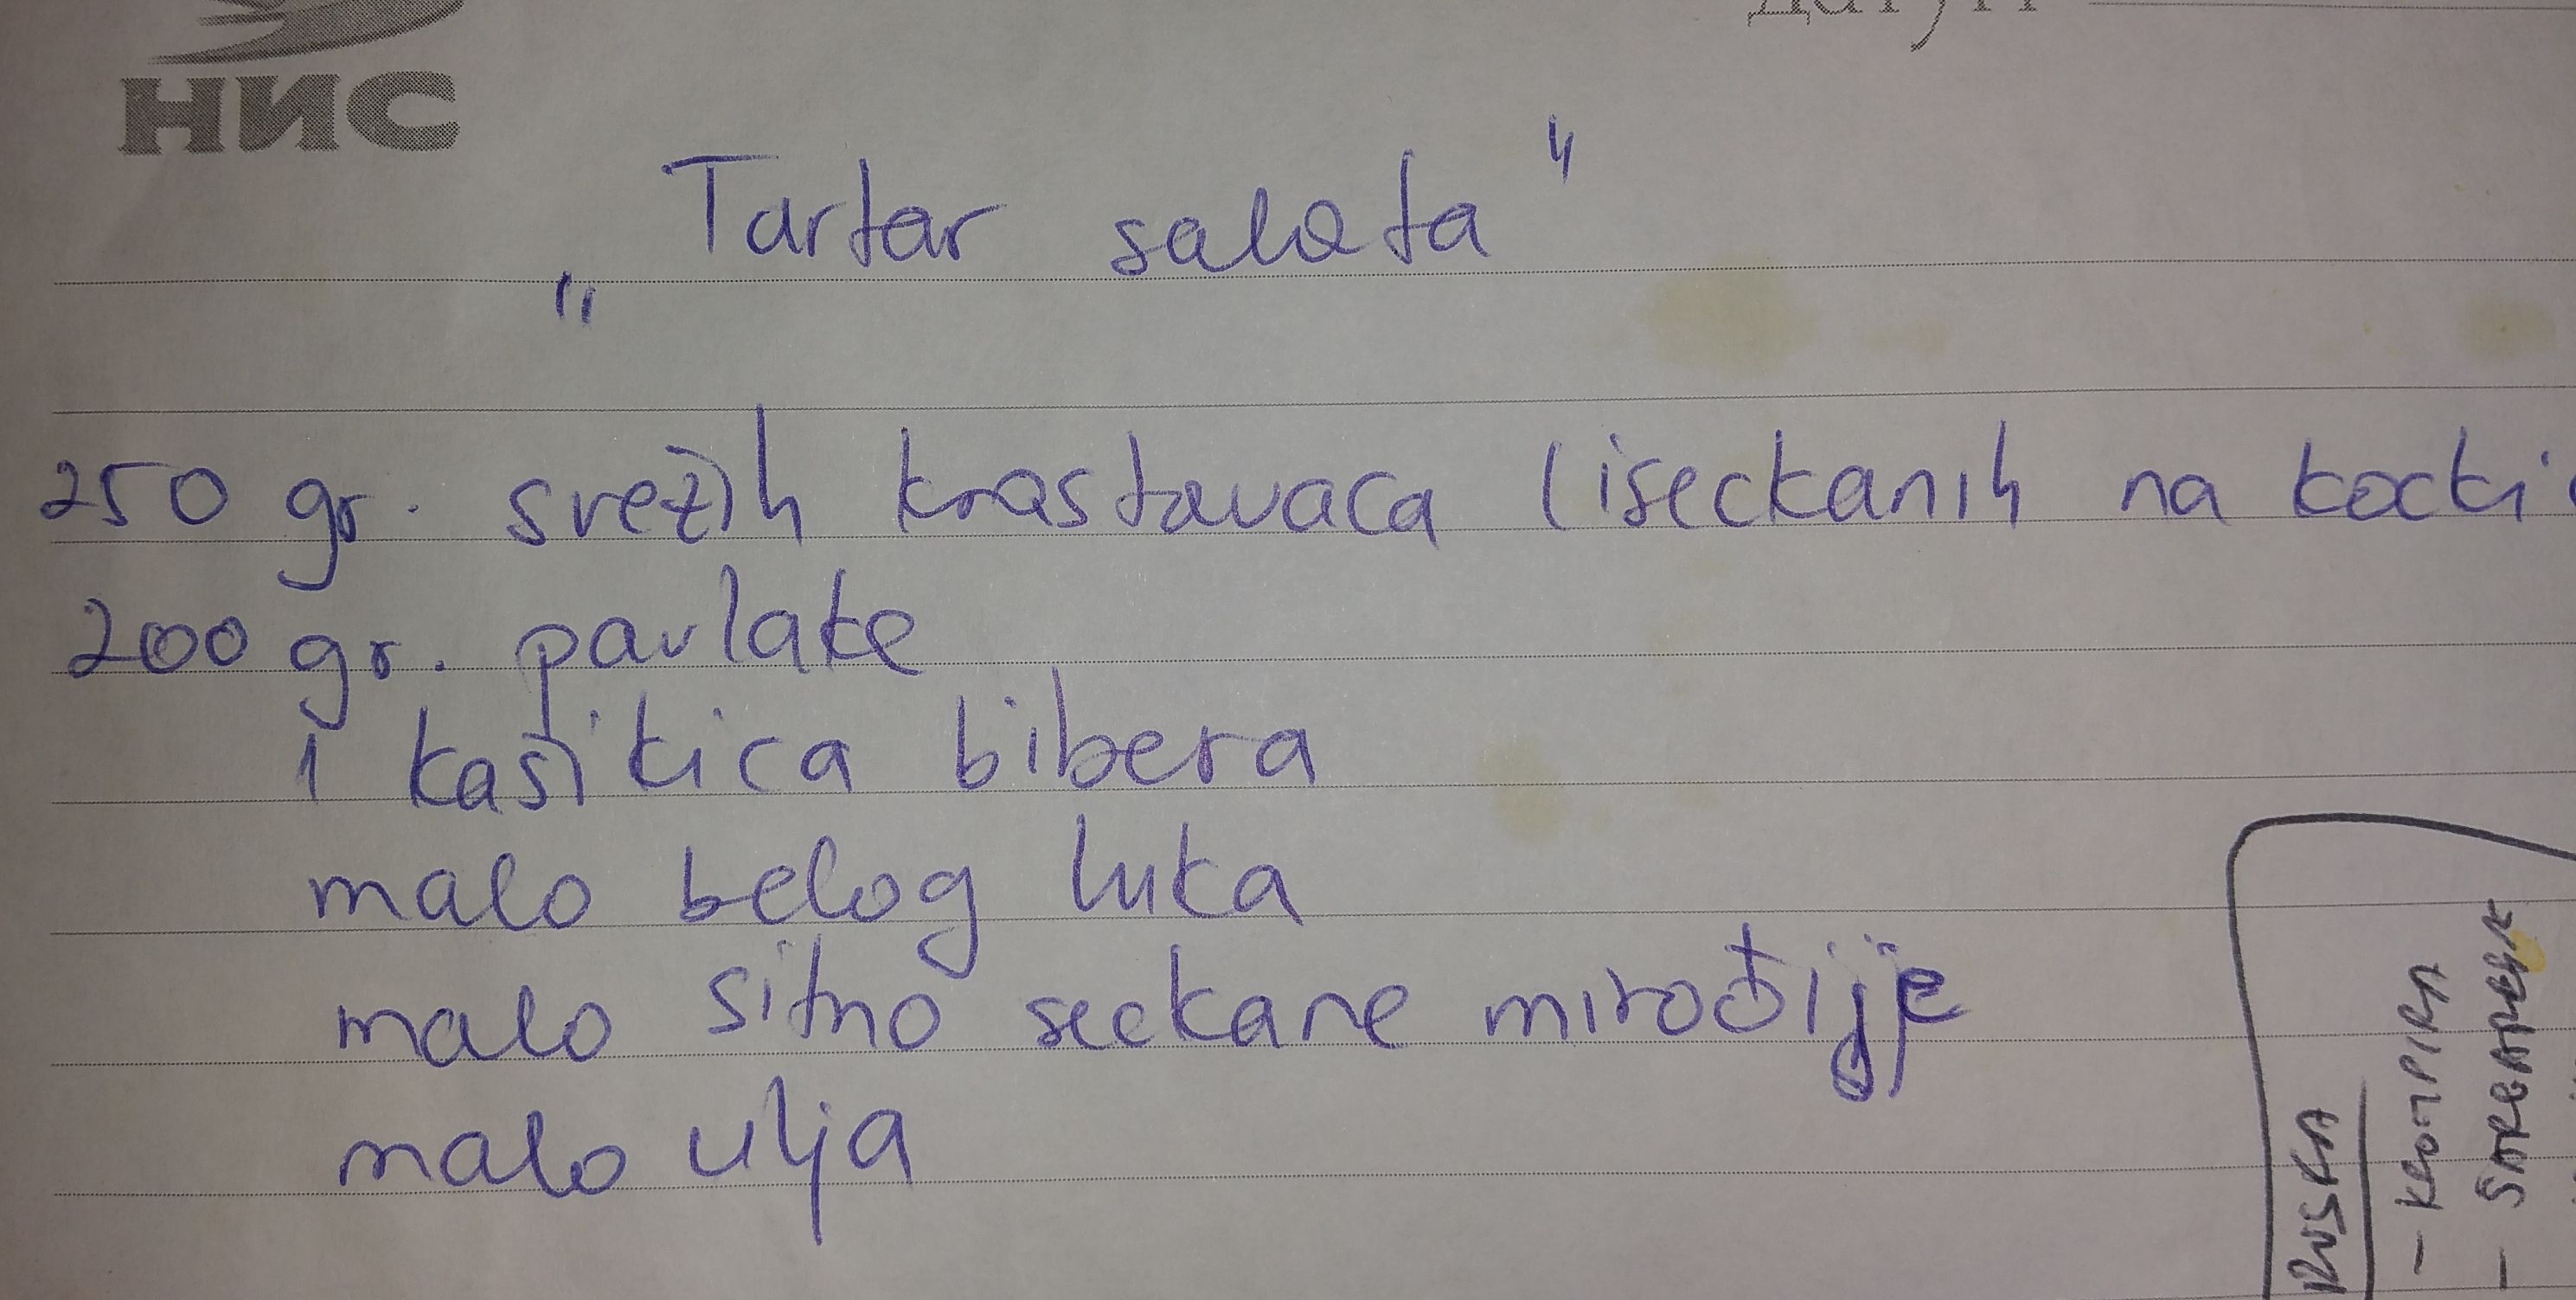 НИС
„Tartar salata"
250 gr. svežih krastavaca (iseckanih na kocki
200 gr. pavlake
1 kašikica bibera
malo belog luka
malo sitno seckane mirođije
malo ulja
RUSKA
- KROMPIRA